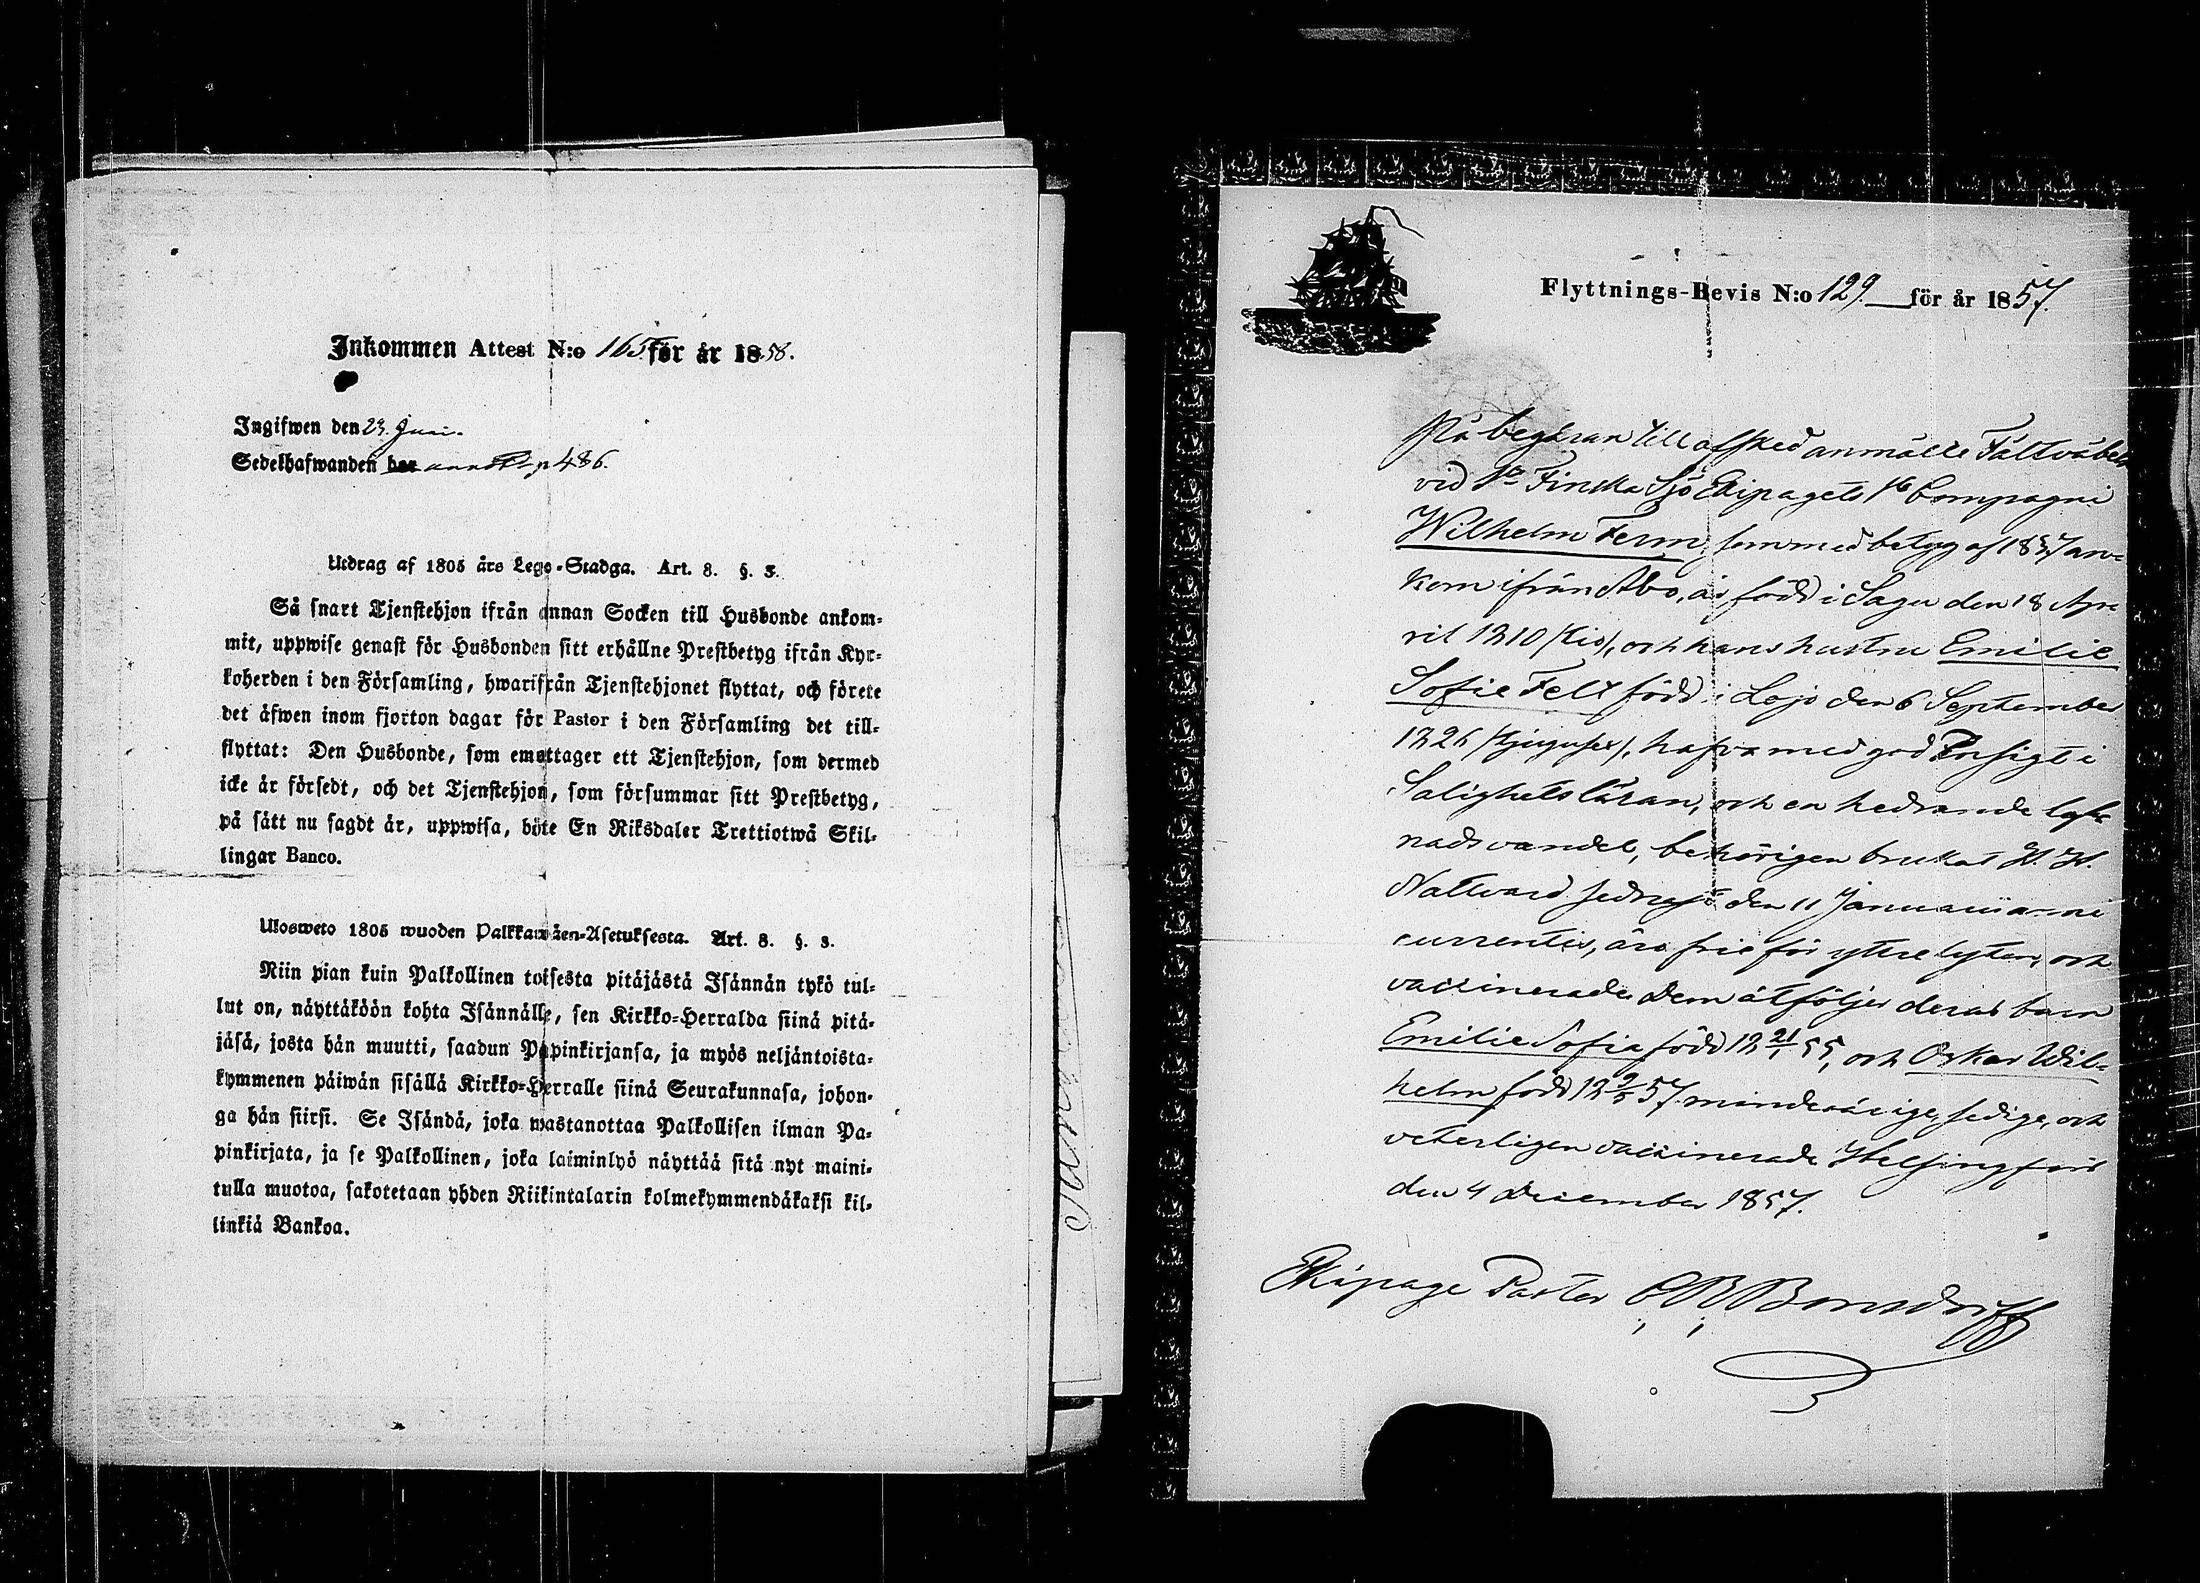 Inkommen Attest N:o 165 för år 1858.
Ingifwen den 23. Juni.
Sedelhafwanden har p 486.
Utdrag af 1805 års Lego-Stadga. Art. 8. §. 3.
Så snart Tjenstehjon ifrån annan Socken till Husbonde ankom-
mit, uppwise genast för Husbonden sitt erhållne Prestbetyg ifrån Kyr-
koherden i den Församling, hwarifrån Tjenstehjonet flyttat, och förete
det äfwen inom fjorton dagar för Pastor i den Församling det till-
flyttat: Den Husbonde, som emottager ett Tjenstehjon, som dermed
icke är försedt, och det Tjenstehjon, som försummar sitt Prestbetyg,
på sätt nu sagdt är, uppwisa, böte En Riksdaler Trettiotwå Skil-
lingar Banco.
Ulosweto 1805 wuoden Palkkawäen-Asetuksesta. Art. 8. §. 3.
Niin pian kuin Palkollinen toisesta pitäjästä Isännän tykö tul-
lut on, näyttäköön kohta Isännälle, sen Kirkko-Herralda siinä pitä-
jäsä, josta hän muutti, saadun Papinkirjansa, ja myös neljäntoista-
kymmenen päiwän sisällä Kirkko-Herralle siinä Seurakunnasa, johon-
ga hän siirsi. Se Isändä, joka wastanottaa Palkollisen ilman Pa-
pinkirjata, ja se Palkollinen, joka laiminlyö näyttää sitä nyt maini-
tulla muotoa, sakotetaan yhden Riikintalarin kolmekymmendäkaksi kil-
linkiä Bankoa.
Flyttnings-Bevis N:o 129. för år 1857.
På begäran till afsked anmälte Fältväbeln
vid 1a Finska Sjö Ekipagets Compagni
Wilhelm Ferm, som med betyg af 1857 an-
kom ifrån Åbo, är född i Sagu den 18 Ap-
ril 1810 /tio/, och hans hustru Emilie
Sofie Felt född i Lojo den 6 September
1826 /tjugusex/, hafva med god Insigt i
Salighetsläran, och en hedrande lef-
nadsvandel, behörigen brukat H. H.
Nattvard sednast den 11 Januarii anni
currentis, äro frie för yttre lyten, och
vaccinerade. Dem åtföljer deras barn
Emilie Sofia född 18 21/1 55, och Oskar Wil-
helm född 18 2/5 57. minderårige, sedige, och
veterligen vaccinerade Helsingfors
den 4 December 1857.
Ekipage Pastor C. R. Bonsdorff